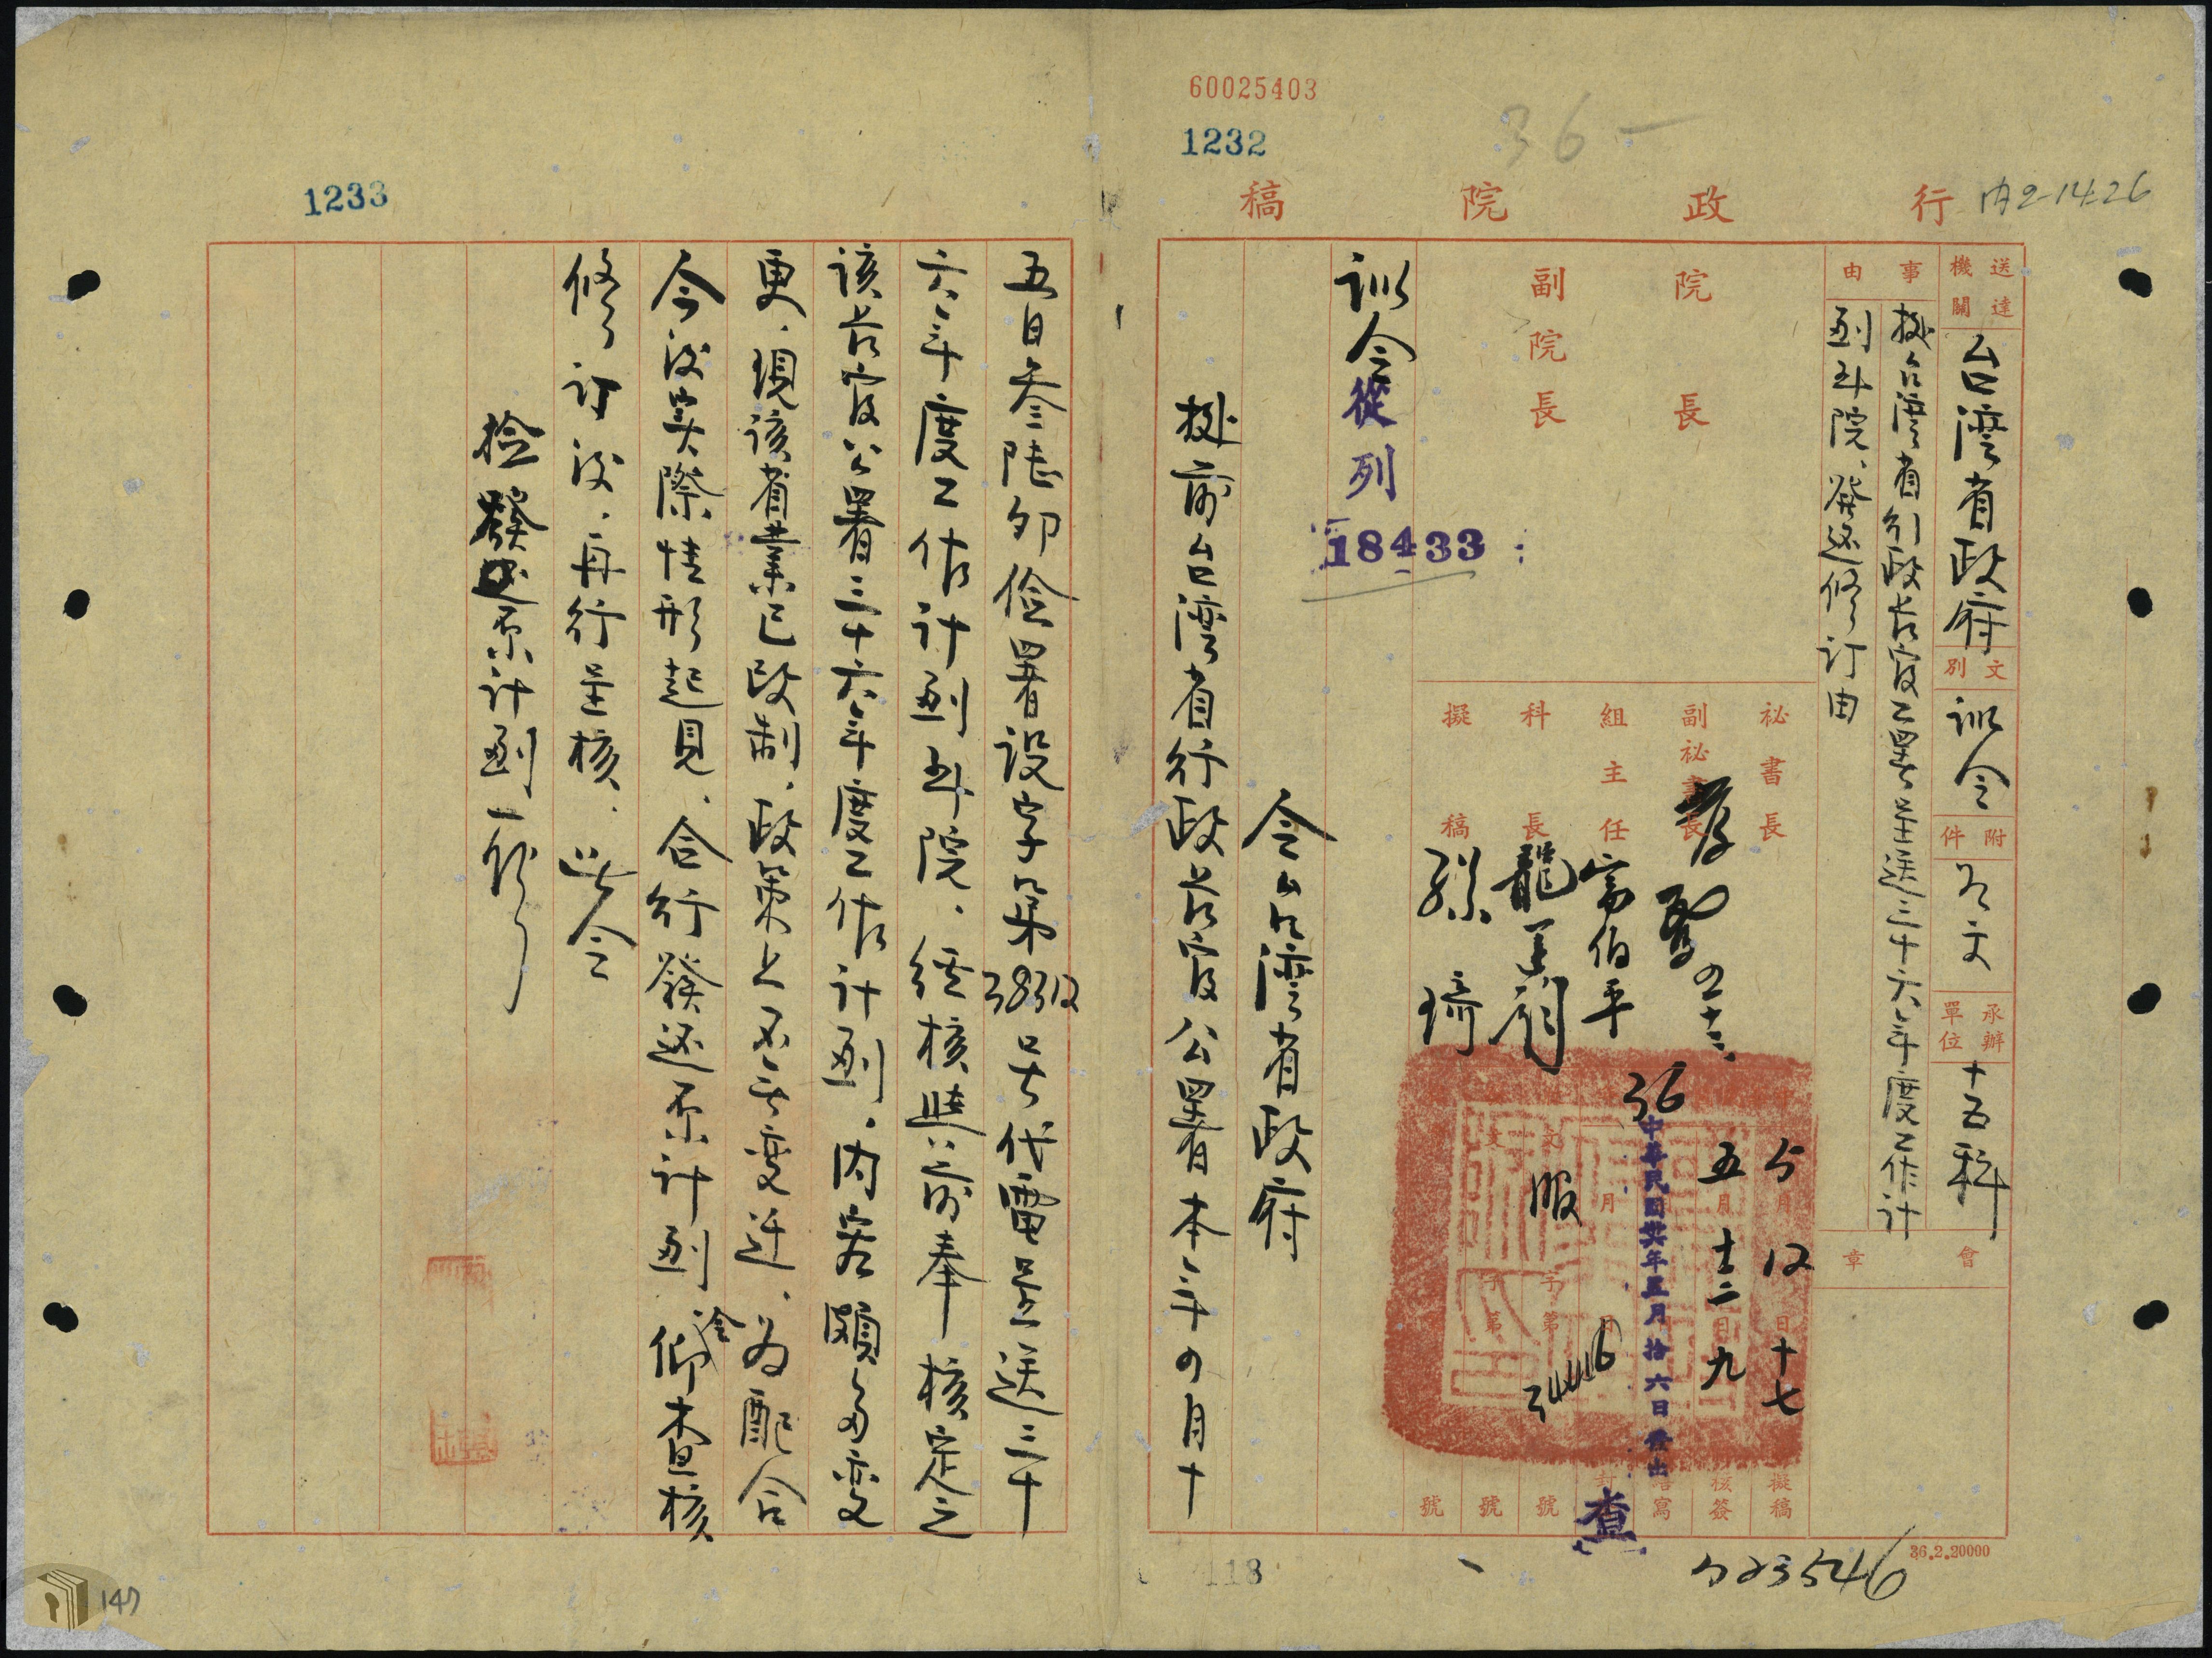 60025403
1232
36-
行政院稿
內2-14.26
送達機關
台灣省政府
文別
訓令
附件
如文
承辦單位
十五科
事由
據台灣省行政長官公署呈送三十六年度工作計
劃到院、發還修訂由
會章
院長
副院長
祕書長
副祕書長
組主任
科長
擬稿
孫琦
5月12日十七
擬稿
五月十二日九
核簽
繕寫
36
中華民國卅六年五月拾六日發出
查
號
號
號
36.2.20000
訓令
從列
18433
令台灣省政府
據前台灣省行政長官公署本年四月十
118
1233
五日叁陸卯儉署設字第38312號代電呈送三十
六年度工作計劃到院、經核與前奉核定之
該長官公署三十六年度工作計劃、內容頗多變
更、現該省業已改制、政策上不無變遷、為配合
今後實際情形起見、合行發還原計劃、令仰查核
修訂後、再行呈核、此令
檢發還原計劃一份
147